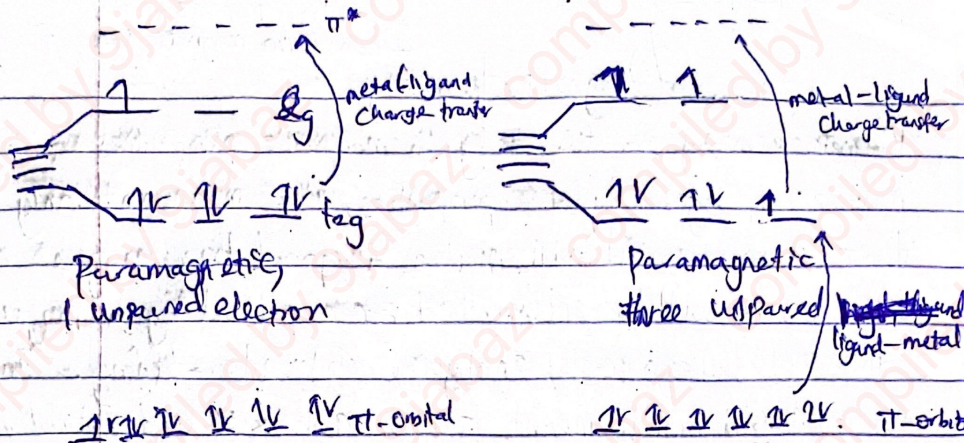 π*
metal-ligand
Charge transfer
eg
t2g
Paramagnetic,
1 unpaired electron
π-orbital
metal-ligand
Charge transfer
Paramagnetic
three unpaired
ligand-metal
π-orbit
compiled by gjabaz